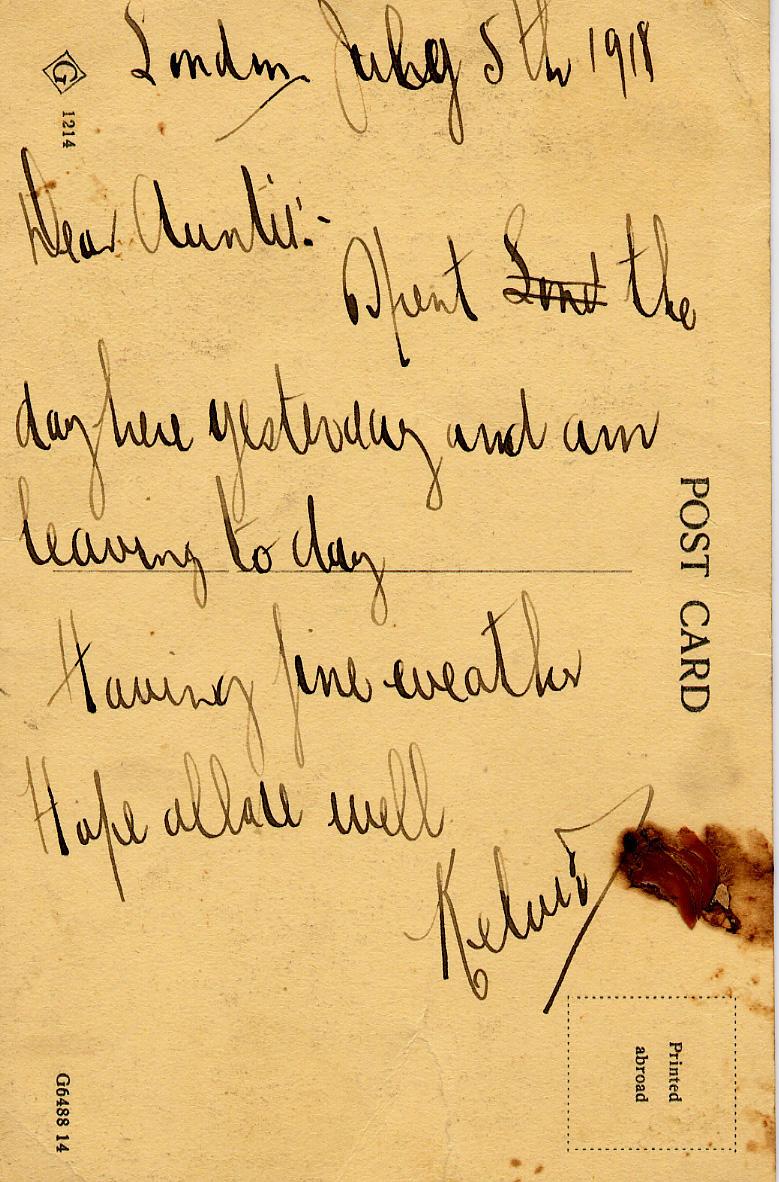 London July 5th 1918
G
1214
Dear Auntie:-
Spent Lond the
day here yesterday and am
leaving to day
POST CARD
Having fine weather
Hope all are well
Printed
abroad
G6488 14